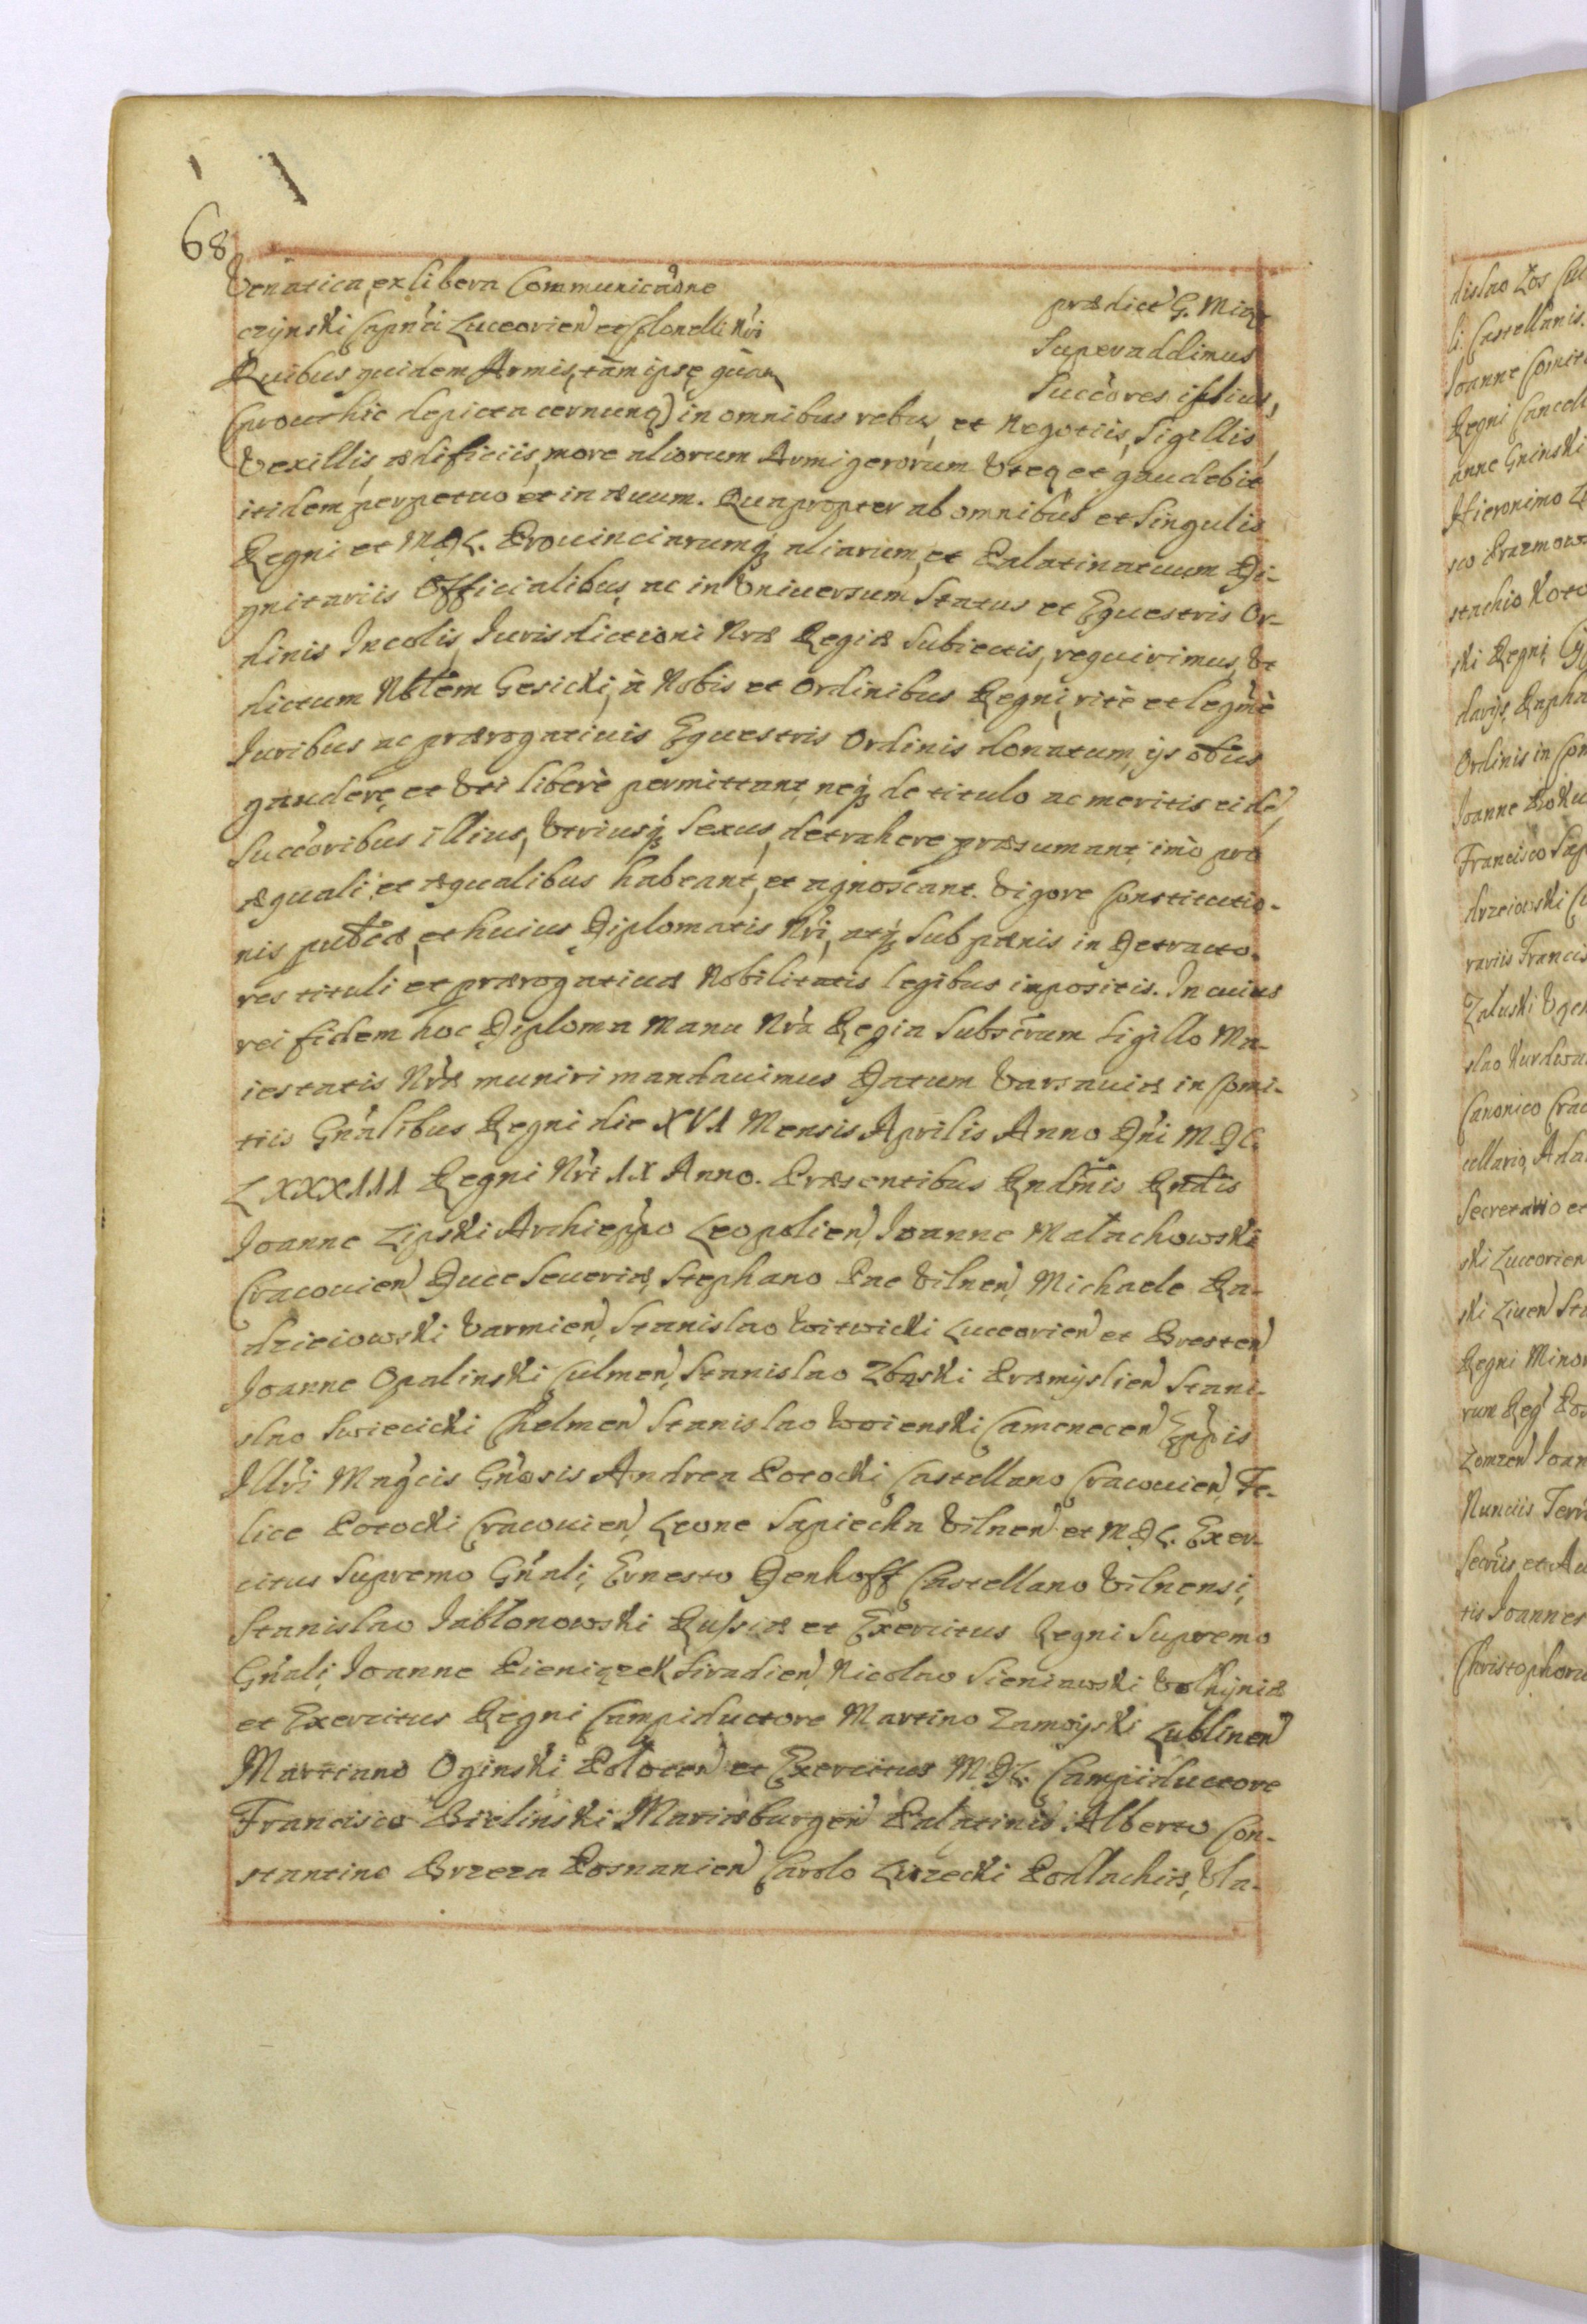 68
Venatica, ex libera Communicaōne prædict G. Mią-
czÿnski Capn̄ei Luceorien̄ et Colonelli Nr̄i Superaddimus
Quibus quidem Armis, tam ipse quam Succ̄ores ipsius,
(prout hic depicta cernunt̄) in omnibus rebus, et Negotiis, Sigillis,
Vexillis, ædificiis, more aliorum Armigerorum Uteq̨ et gaudebit
itidem perpetuo et in ævum. Quapropter ab omnibus et singulis
Regni et M.D.L. Provinciarumq̨ aliarum, et Palatinatuum Di-
gnitariis Officialibus, ac in Universum Status et Equestris Or-
dinis Incolis, Jurisdictioni Nr̄æ Regiæ Subiectis, requirimus, Ut
dictum Nbl̄em Gesicki, à Nobis et Ordinibus Regni, ritè et leḡmè
Juribus ac prærogativis Equestris Ordinis donatum, ijs ōbus
gaudere, et Uti liberè permittant, neq̨ de titulo ac meritis eidē,
Succ̄oribus illius, Utriusq̨ Sexus, detrahere præsumant, imò pro
æquali, et æqualibus habeant, et agnoscant. Vigore Constitutio-
nis publ̄cæ, et huius Diplomatis Nr̄i, atq̨ Sub pænis in Detracto-
res tituli, et prærogativæ Nobilitatis legibus inpositis. In cuius
rei fidem hoc Diploma Manu Nr̄a Regia Subscr̄am Sigillo Ma-
iestatis Nr̄æ muniri mandavimus Datum Varsaviæ in Comi-
tiis Gn̄alibus Regni die XVI Mensis Aprilis Anno Dn̄i MDC.
LXXXIII Regni Nr̄i IX Anno. Præsentibus Rndm̄is Rnd̄is
Joanne Lipski Archiepp̄o Leopolien̄, Joanne Małachowski
Cracovien̄ Duce Severiæ, Stephano Pac Vilnen̄, Michaele Ra-
dzieiowski Varmien̄, Stanislao Witwicki Luceorien̄ et Bresten̄
Joanne Opalinski Culmen̄, Stanislao Zbąski Præmÿslien̄ Stani-
slao Swiecicki Chelmen̄ Stanislao Woienski Camenecen̄ Epp̄is
Illr̄i Magc̄is Gn̄osis Andrea Potocki Castellano Cracovien̄, Fe-
lice Potocki Cracovien̄, Leone Sapiecha Vilnen̄ et M.D.L. Exer-
citus Supremo Gn̄ali, Ernesto Denhoff Castellano Vilnensi,
Stanislao Jabłonowski Russiæ et Exercitus Regni Supremo
Gn̄ali, Joanne Pieniązek Siradien̄, Nicolao Sieniawski Volhÿniæ
et Exercitus Regni Campiductore Martino Zamoÿski Lublinen̄
Martiano Oginski Połocen̄ et Exercitus M.D.L. Campiductore
Francisco Bielinski Mariæburgen̄ Palatinis. Alberto Con-
stantino Brzeza Posnanien̄ Carolo Luzecki Podlachiæ, Vla-
dislao Los
li, Castellanis.
Joanne
Regni
anne Gninski
Hieronimo
stachio
ski Regni,
Ordinis in
Joanne
Francisco
rariis
Załuski
Canonico
cellario,
Secretario et
ski Luceorien
ski
Regni
Nunciis
tis Joannes